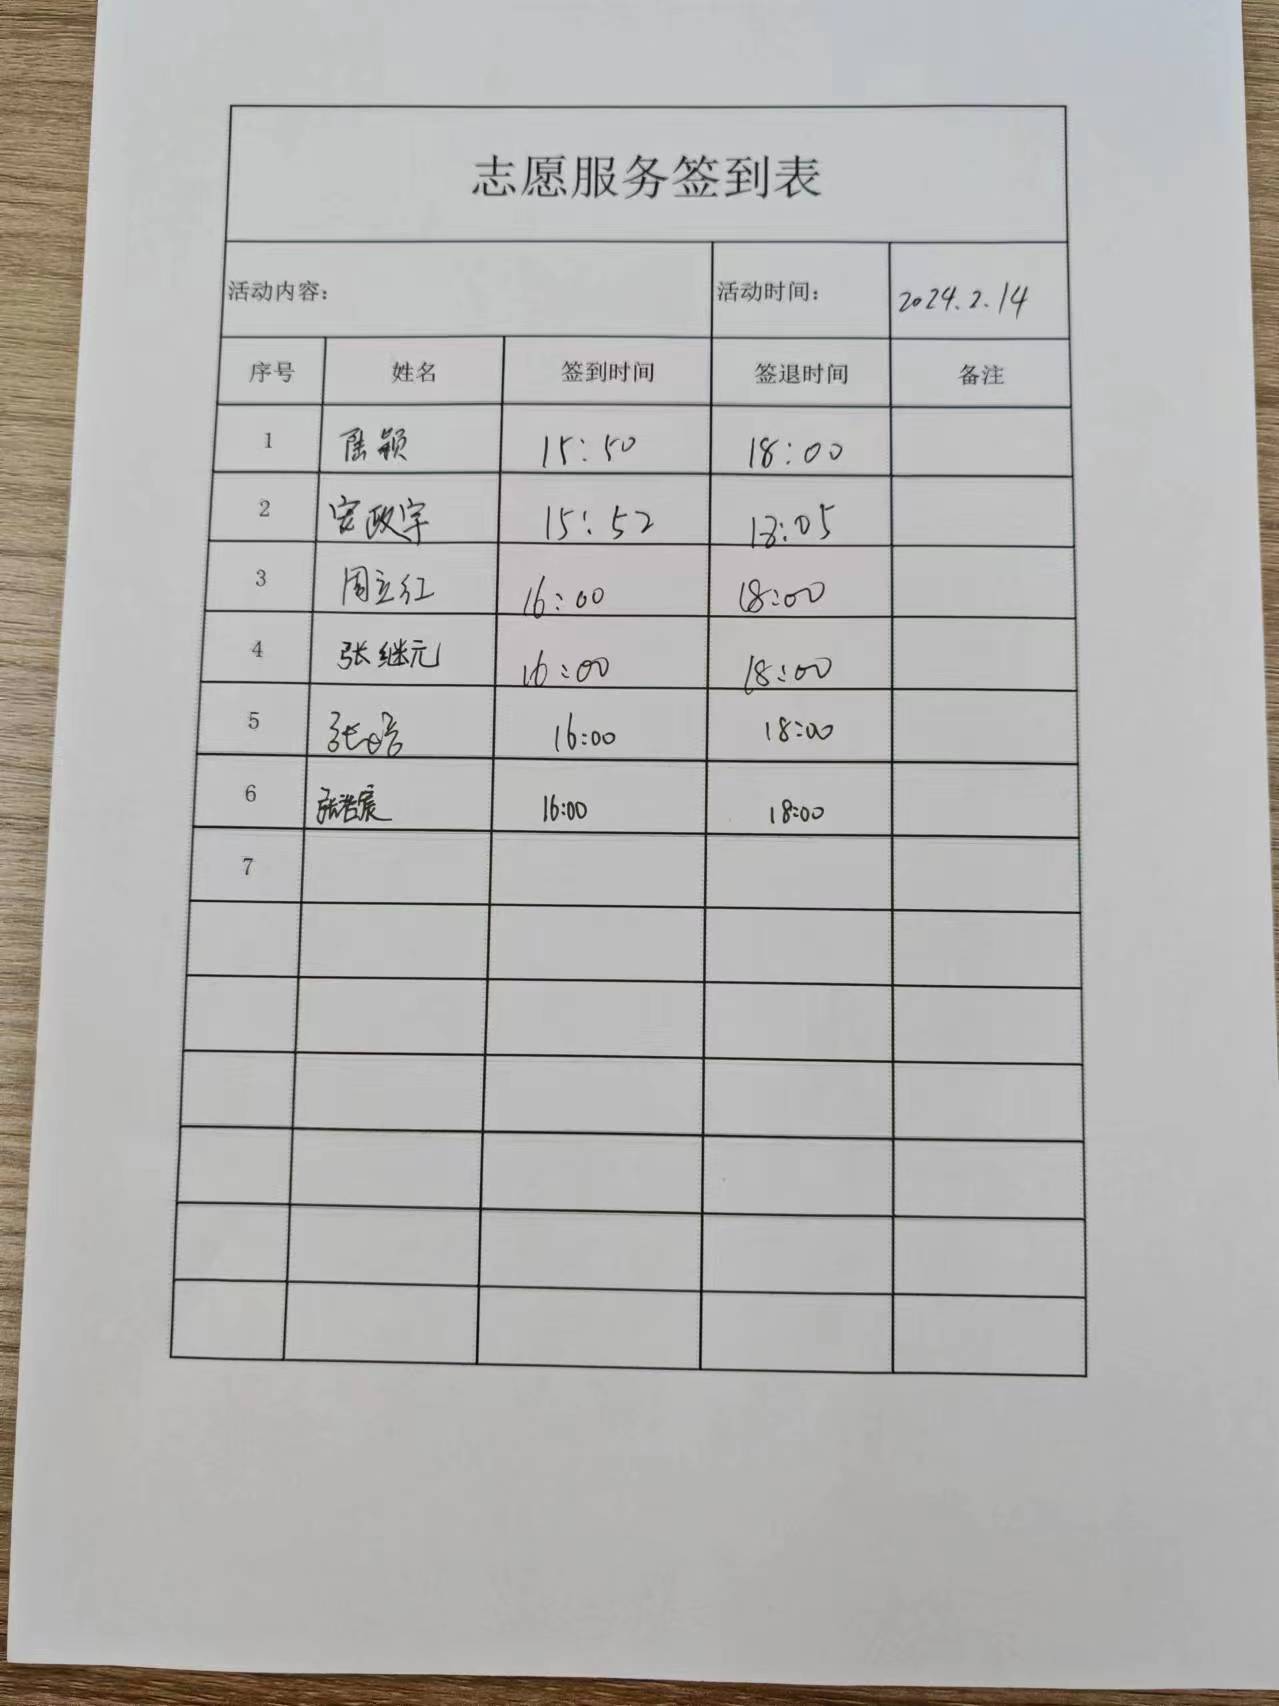 志愿服务签到表
活动内容： 活动时间： 2024.2.14
序号 姓名 签到时间 签退时间 备注
1 颖 15:50 18:00
2 政宇 15:52 18:05
3 周立红 16:00 18:00
4 张继元 16:00 18:00
5 张 16:00 18:00
6 张浩宸 16:00 18:00
7